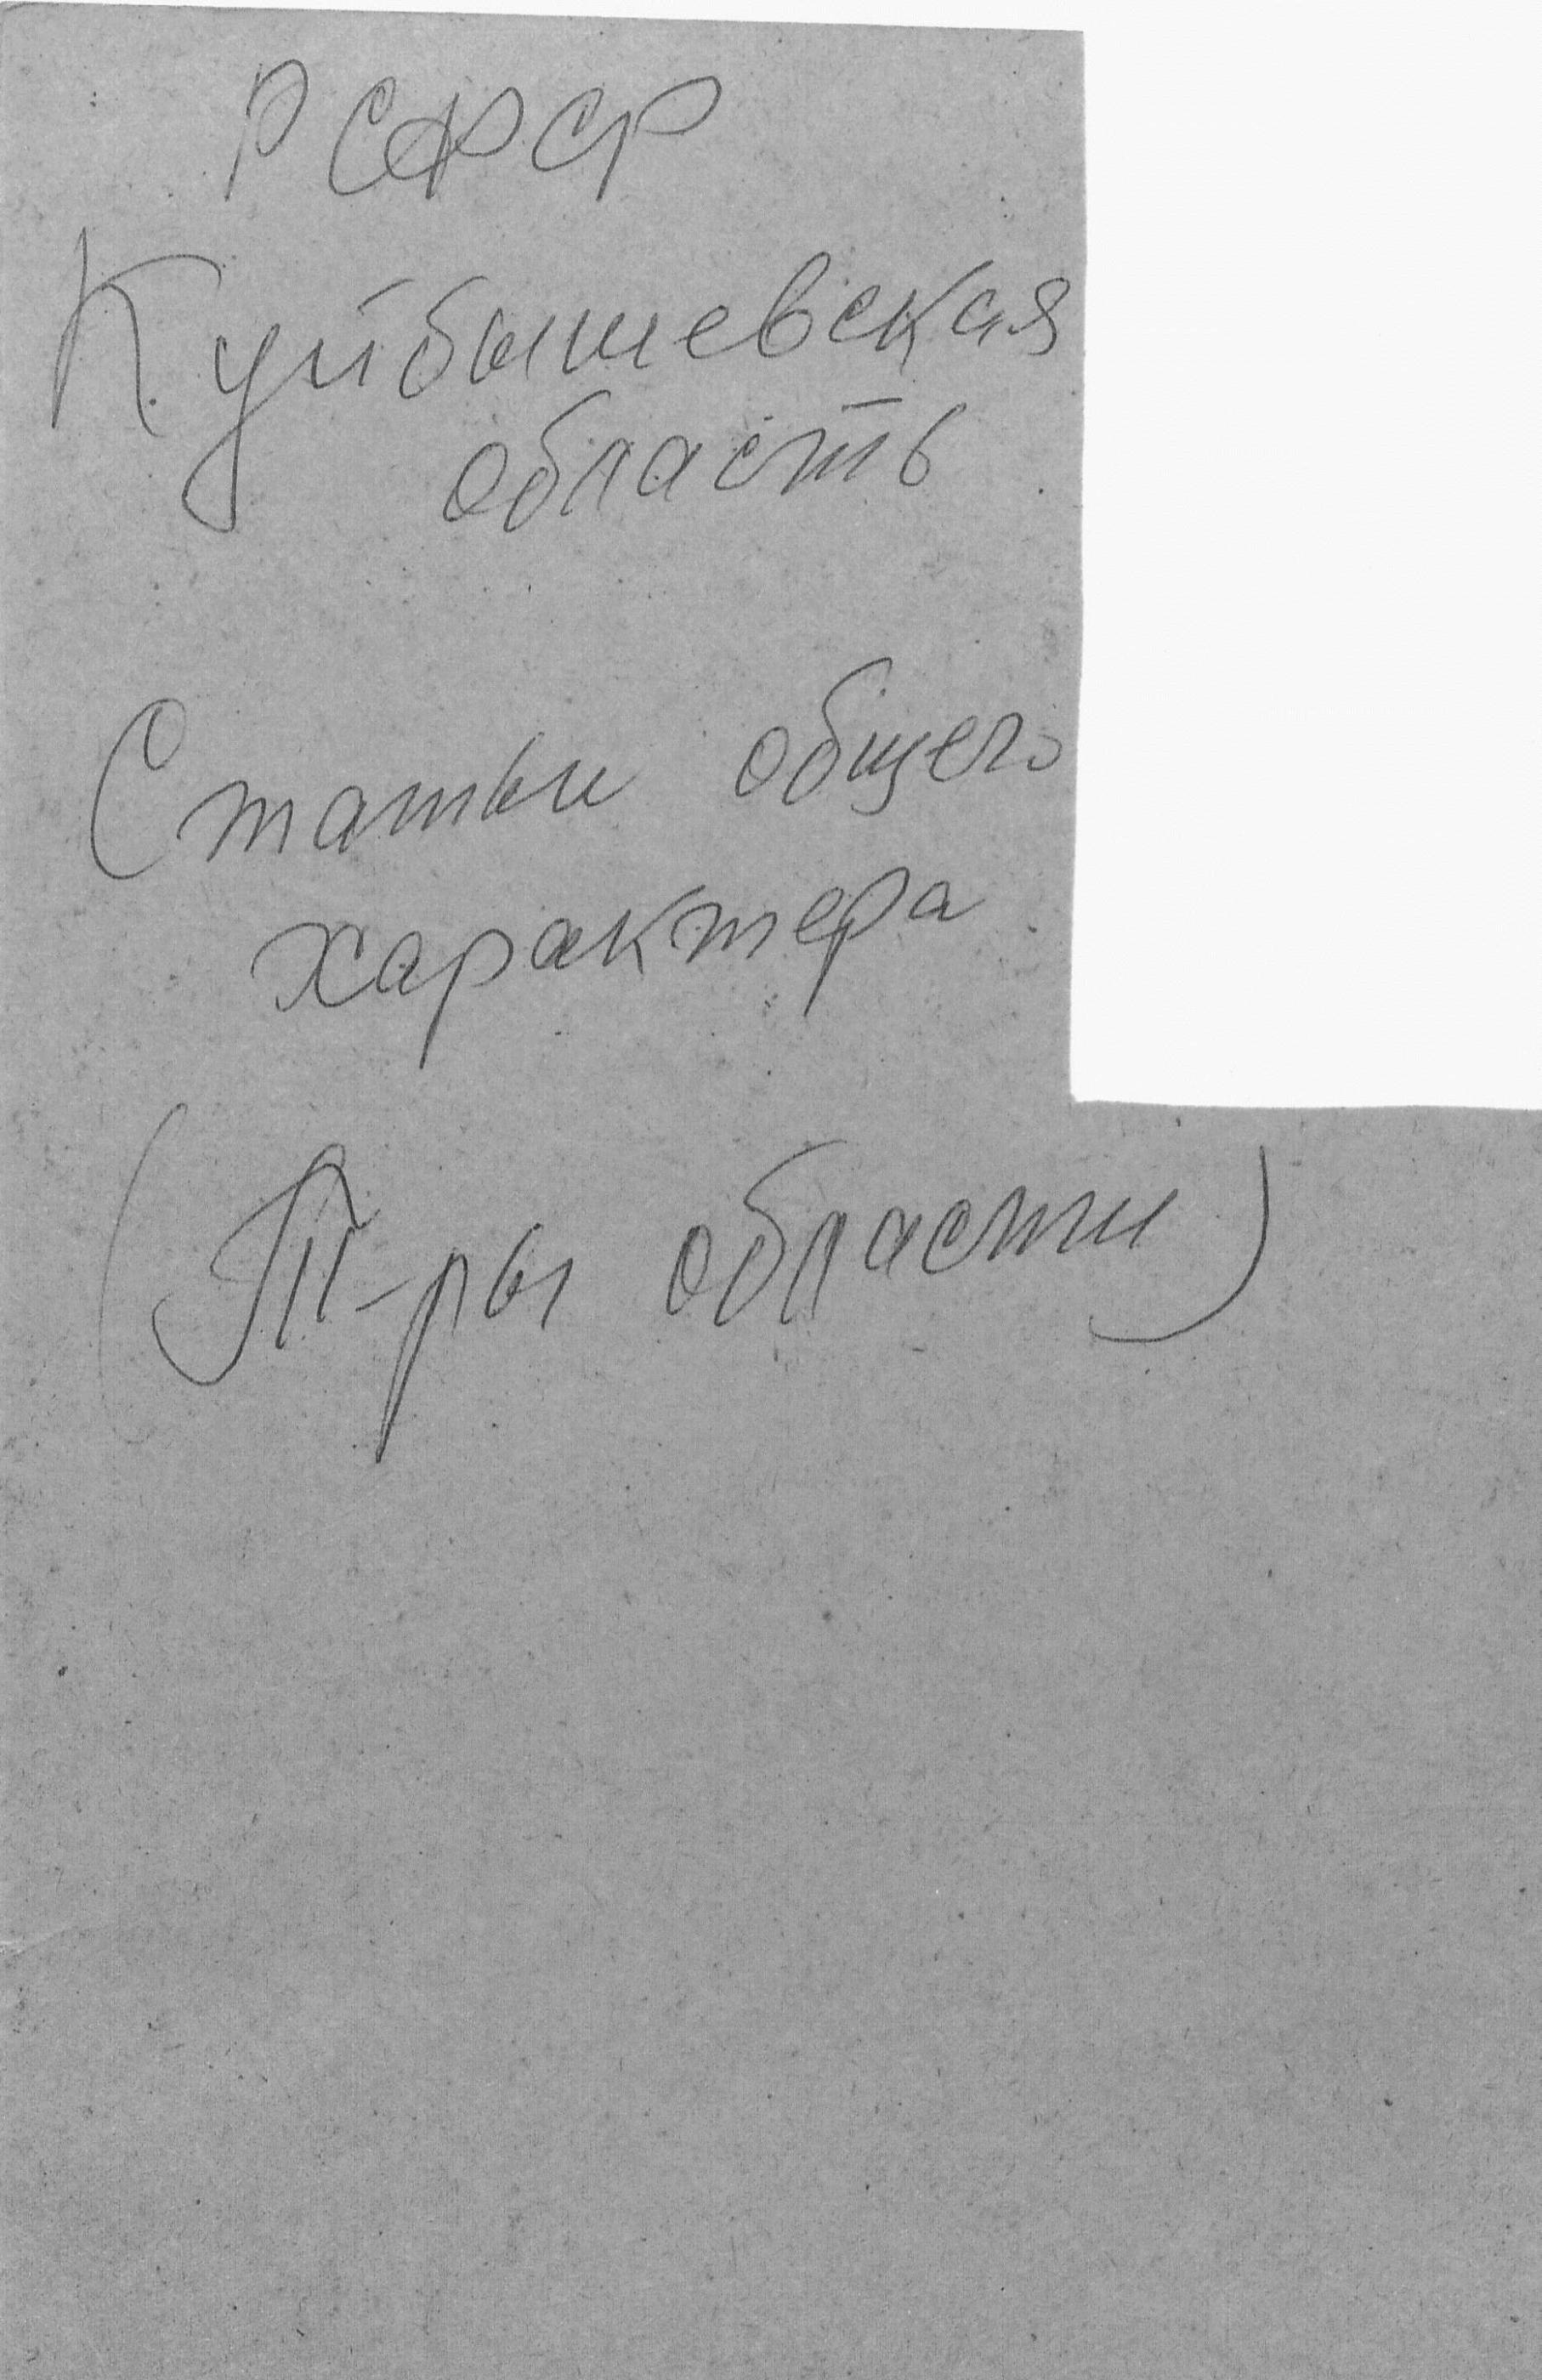 РСФСР
Куйбышевская
область
Статьи общего
характера
(Т-ры области)